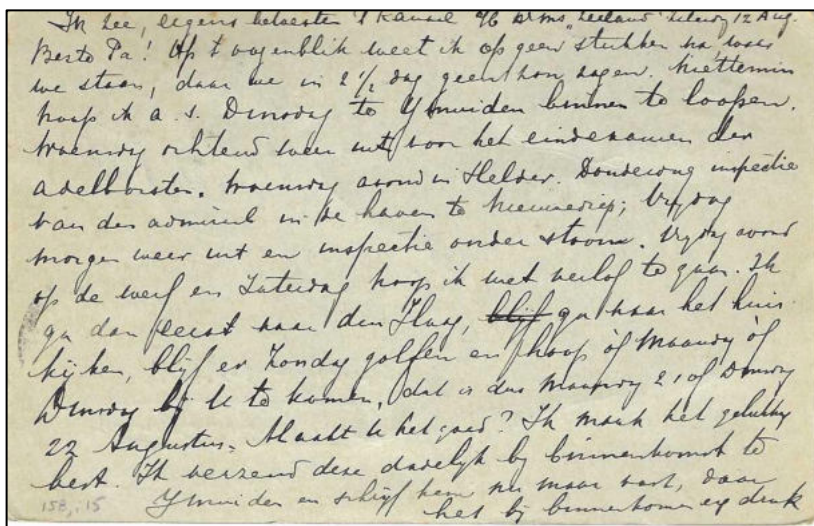 In zee, ergens beoosten 't Kanaal a/b Hr Ms "Zeeland" Zaterdag 12 Aug.
Beste Pa! Op 't oogenblik weet ik op geen stukken na waar
we staan, daar we in 2 1/2 dag geen zon zagen. Niettemin
hoop ik a.s. Dinsdag te Ymuiden binnen te loopen.
Woensdag ochtend weer uit voor het eindexamen der
adelborsten. Woensdag avond in Helder. Donderdag inspectie
van den admiraal in de haven te Nieuwediep; Vrydag
morgen weer uit en inspectie onder stoom. Vrydag avond
op de werf en Zaterdag hoop ik met verlof te gaan. Ik
ga dan eerst naar den Haag, blijf ga naar het huis
kijken, blijf er Zondag golfen en hoop òf Maandag òf
Dinsdag bij U te komen, dat is dus Maandag 21 of Dinsdag
22 Augustus. Maakt U het goed? Ik maak het gelukkig
best. Ik verzend deze dadelyk by binnenkomst te
Ymuiden en schryf hem nu maar vast, daar
het bij binnenkomen erg druk
158,-15